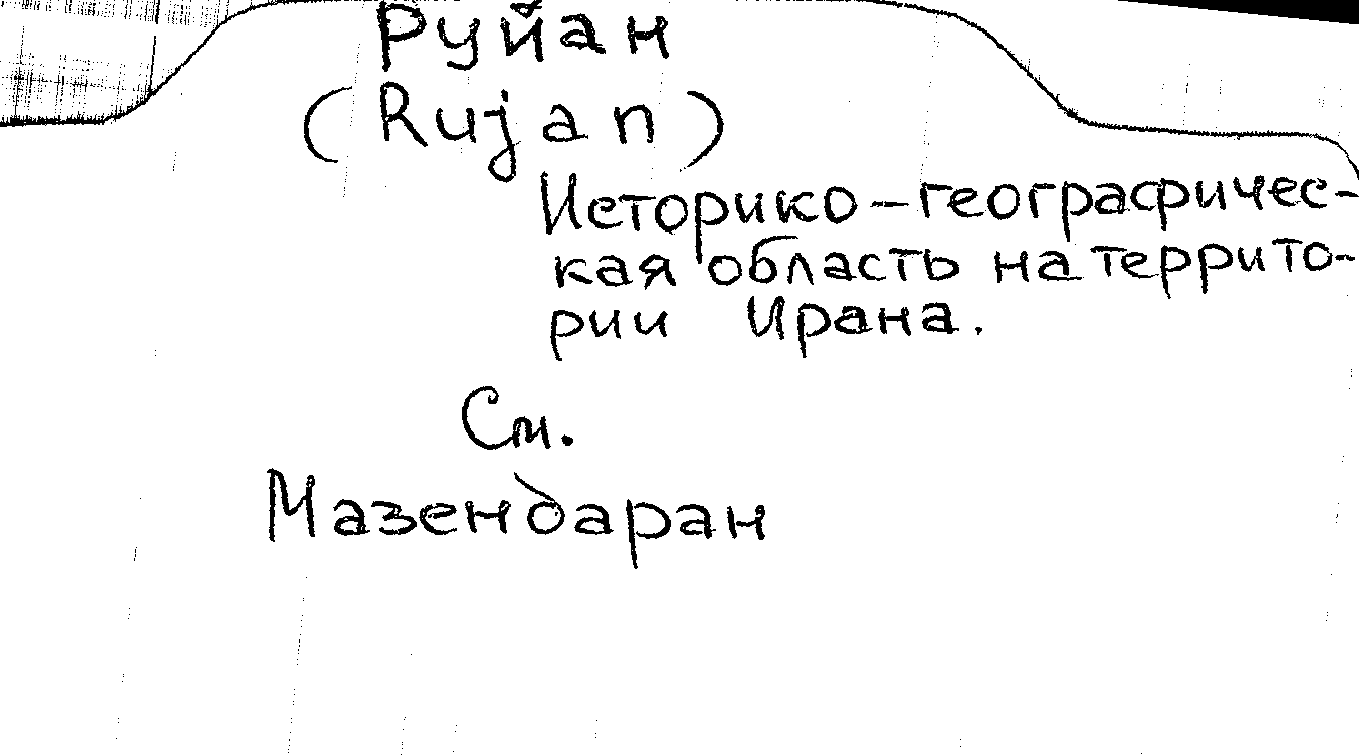 Руйан
(Rujan)
Историко-географичес-
кая область на террито-
рии Ирана.
См.
Мазендаран